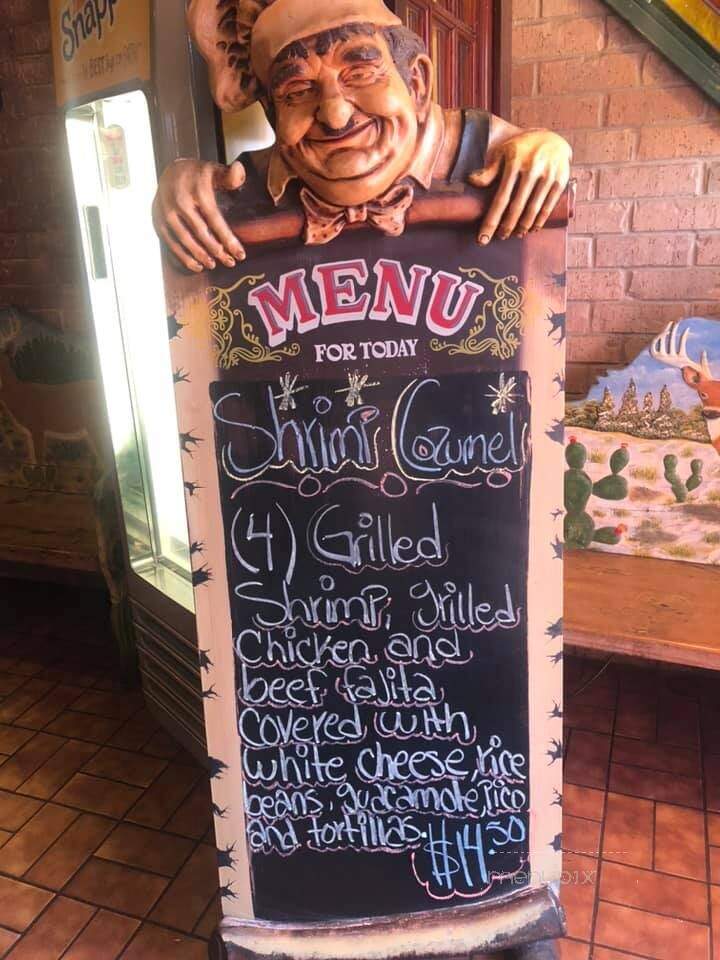 Snapp
BEST
MENU
FOR TODAY
Shrimp Cozumel
(4) Grilled
Shrimp, grilled
Chicken and
beef fajita
covered with
white cheese, rice
beans, guacamole, Pico
and tortillas. $14.50
menupix